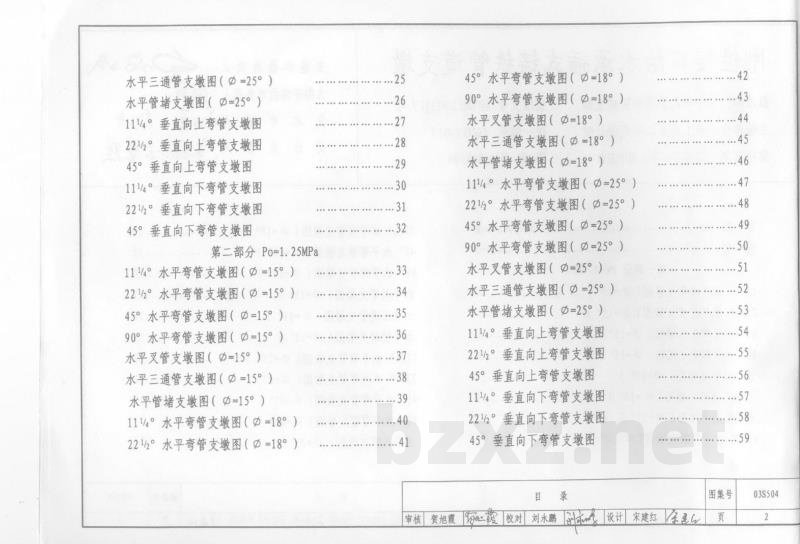 水平三通管支墩图(∅=25°) ……………25
水平管堵支墩图(∅=25°) ……………26
11¼° 垂直向上弯管支墩图 ……………27
22½° 垂直向上弯管支墩图 ……………28
45° 垂直向上弯管支墩图 ……………29
11¼° 垂直向下弯管支墩图 ……………30
22½° 垂直向下弯管支墩图 ……………31
45° 垂直向下弯管支墩图 ……………32
第二部分 Po=1.25MPa
11¼° 水平弯管支墩图(∅=15°) ……………33
22½° 水平弯管支墩图(∅=15°) ……………34
45° 水平弯管支墩图(∅=15°) ……………35
90° 水平弯管支墩图(∅=15°) ……………36
水平叉管支墩图(∅=15°) ……………37
水平三通管支墩图(∅=15°) ……………38
水平管堵支墩图(∅=15°) ……………39
11¼° 水平弯管支墩图(∅=18°) ……………40
22½° 水平弯管支墩图(∅=18°) ……………41
45° 水平弯管支墩图(∅=18°) ……………42
90° 水平弯管支墩图(∅=18°) ……………43
水平叉管支墩图(∅=18°) ……………44
水平三通管支墩图(∅=18°) ……………45
水平管堵支墩图(∅=18°) ……………46
11¼° 水平弯管支墩图(∅=25°) ……………47
22½° 水平弯管支墩图(∅=25°) ……………48
45° 水平弯管支墩图(∅=25°) ……………49
90° 水平弯管支墩图(∅=25°) ……………50
水平叉管支墩图(∅=25°) ……………51
水平三通管支墩图(∅=25°) ……………52
水平管堵支墩图(∅=25°) ……………53
11¼° 垂直向上弯管支墩图 ……………54
22½° 垂直向上弯管支墩图 ……………55
45° 垂直向上弯管支墩图 ……………56
11¼° 垂直向下弯管支墩图 ……………57
22½° 垂直向下弯管支墩图 ……………58
45° 垂直向下弯管支墩图 ……………59
bzxz.net
目 录 图集号 03S504
审核 贺旭霞 校对 刘永鹏 设计 宋建红 页 2